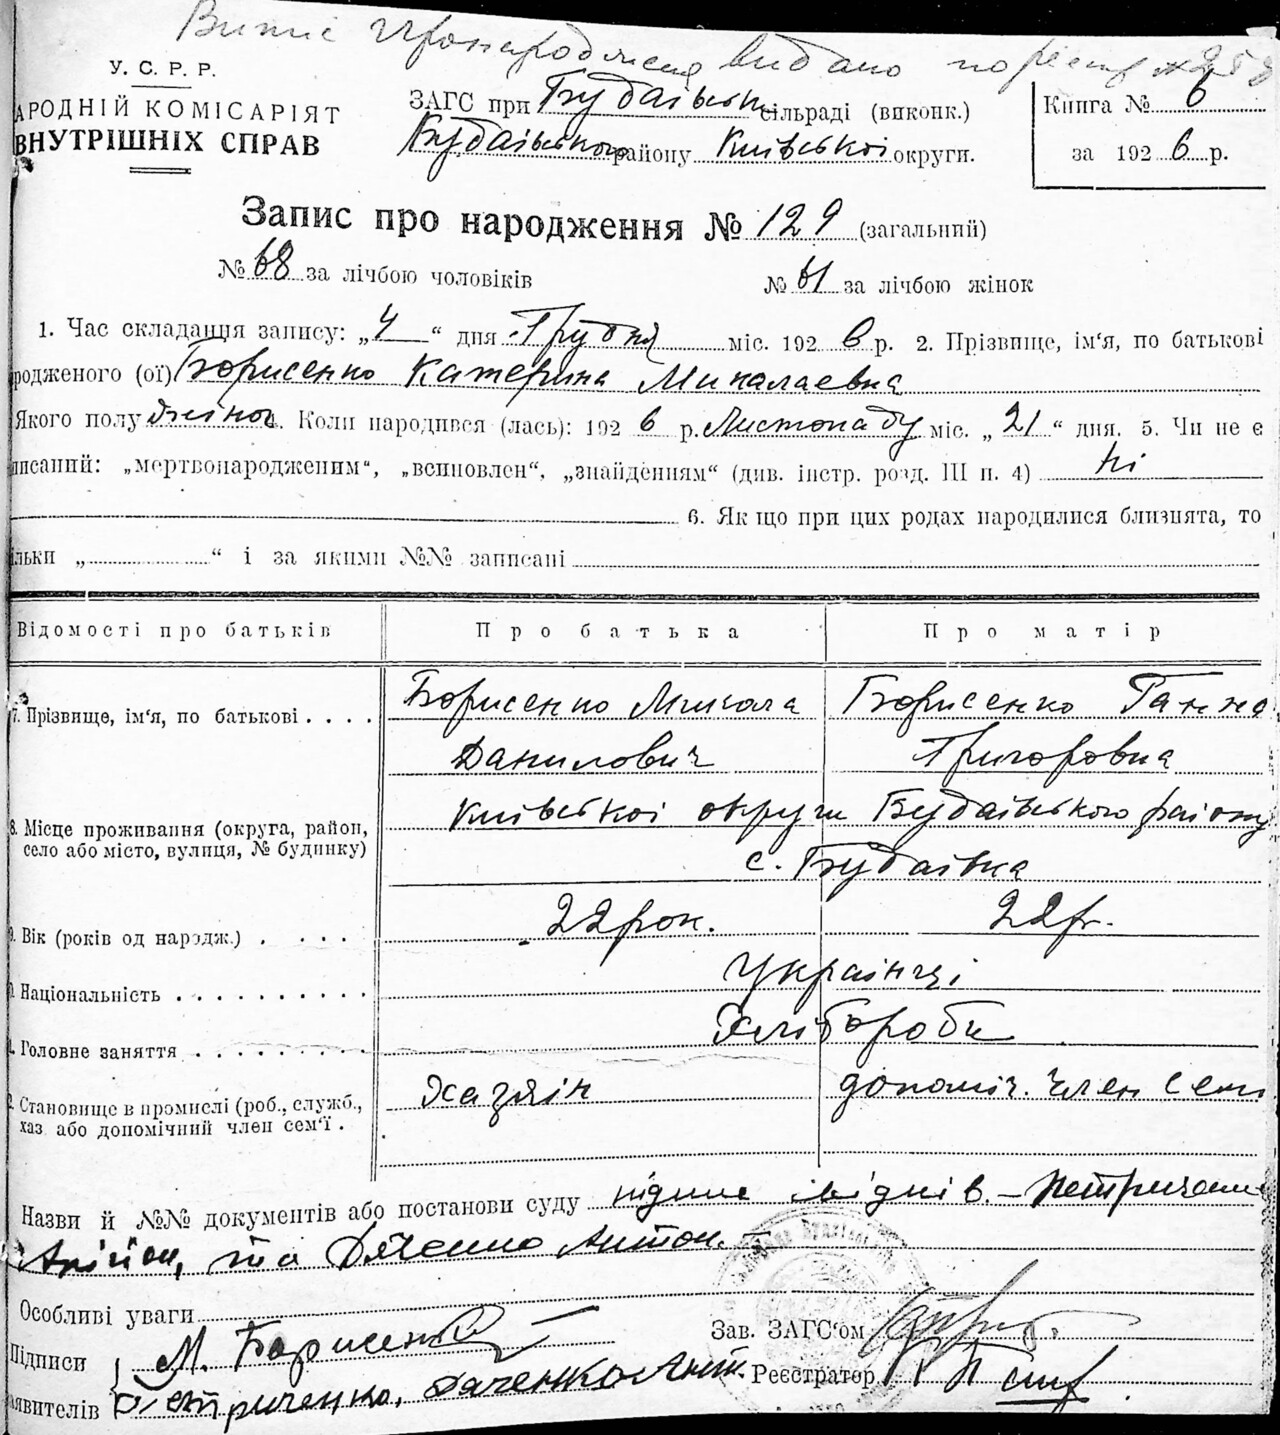 Витяг про народження видано по реєстр № 258
У. С. Р. Р.
АРОДНІЙ КОМІСАРІЯТ
ВНУТРІШНІХ СПРАВ
ЗАГС при Будаївськ сільраді (виконк.)
Будаївського району Київської округи.
Книга № 6
за 192 6 р.
Запис про народження № 129 (загальний)
№ 68 за лічбою чоловіків № 61 за лічбою жінок
1. Час складання запису: „4" дня Грудня міс. 192 6 р. 2. Прізвище, ім'я, по батькові
родженого (ої) Борисенко Катерина Миколаевна
Якого полу жіноч. Коли народився (лась): 192 6 р. Листопаду міс. „21" дня. 5. Чи не є
писаний: „мертвонародженим", „всиновлен", „знайденням" (див. інстр. розд. III п. 4) ні
6. Якщо при цих родах народилися близнята, то
ільки „ " і за якими №№ записані
Відомості про батьків Про батька Про матір
7. Прізвище, ім'я, по батькові . . . . Борисенко Микола Борисенко Ганна
Данилович Григоровна
8. Місце проживання (округа, район, село або місто, вулиця, № будинку) Київської округи Будаївського району
с. Будаівка
9. Вік (років од народж.) . . . . 22 рок. 22 р.
Національність . . . . . . . . . . Українці
Головне заняття . . . . . . . . . Хлібороби
Становище в промислі (роб., служб., хаз. або допомічний член сем'ї . Хазяін допоміч. член сем
Назви й №№ документів або постанови суду
та Дяченко Антон.
Особливі уваги
Підписи М. Борисенко Зав. ЗАГС'ом
аявителів Петриченко, Дяченко Ант. Реєстратор